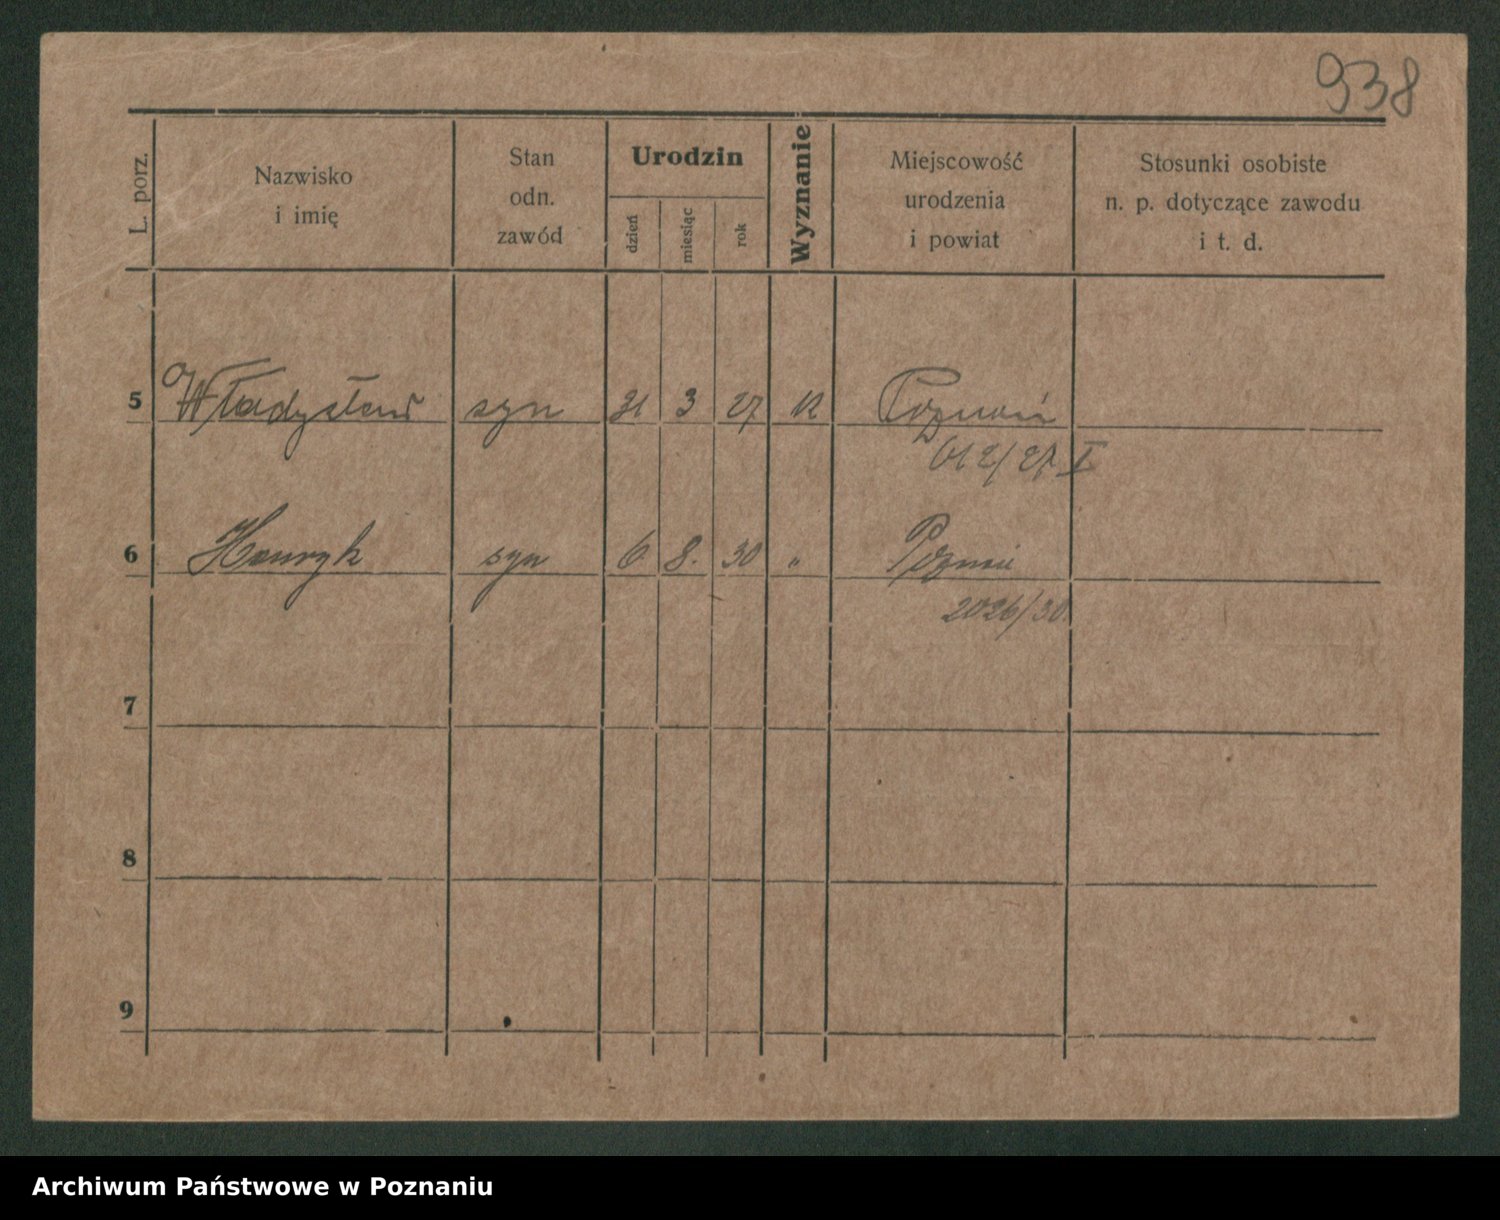 938
L. porz.
Nazwisko
i imię
Stan
odn.
zawód
Urodzin
dzień
miesiąc
rok
Wyznanie
Miejscowość
urodzenia
i powiat
Stosunki osobiste
n. p. dotyczące zawodu
i t. d.
5 Władysław syn 31 3 27 Poznań
612/27 I
6 Henryk syn 6 8. 30 " Poznań
2026/30.
7
8
9
Archiwum Państwowe w Poznaniu